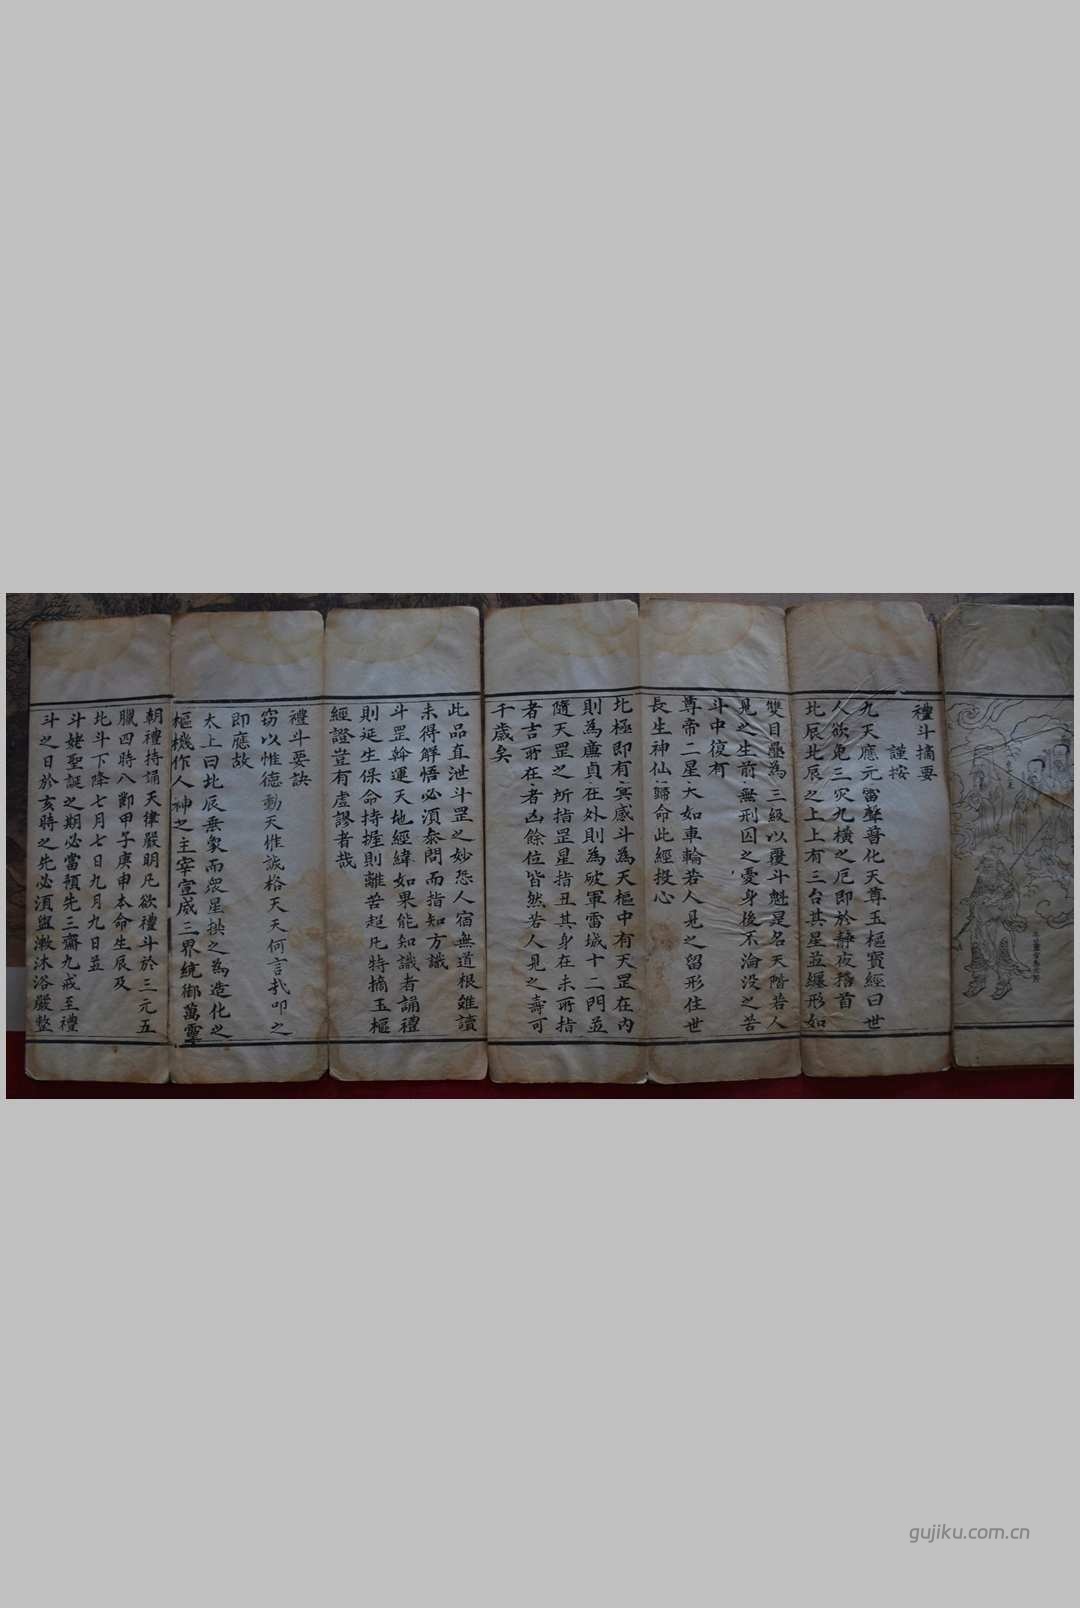 禮斗摘要
謹按
九天應元雷聲普化天尊玉樞寶經曰世
人欲免三灾九橫之厄即於靜夜稽首
北辰北辰之上上有三台其星並纏形如
雙目疊為三級以覆斗魁是名天階若人
見之生前無刑囚之憂身後不淪没之苦
斗中復有
尊帝二星大如車輪若人見之留形住世
長生神仙歸命此經投心
北極即有冥感斗為天樞中有天罡在內
則為廉貞在外則為破軍雷城十二門並
隨天罡之所指罡星指丑其身在未所指
者吉所在者凶餘位皆然若人見之壽可
千歲矣
此品直泄斗罡之妙恐人宿無道根雖讀
未得解悟必須叅問而指知方識
斗罡斡運天地經緯如果能知識者誦禮
則延生保命持握則離苦超凡特摘玉樞
經證豈有虛謬者哉
禮斗要訣
窃以惟德動天惟誠格天天何言哉叩之
即應故
太上曰北辰垂象而衆星拱之為造化之
樞機作人神之主宰宣威三界統御萬靈
朝禮持誦天律嚴明凡欲禮斗於三元五
臘四時八節甲子庚申本命生辰及
北斗下降七月七日九月九日並
斗姥聖誕之期必當預先三齋九戒至禮
斗之日於亥時之先必須盥漱沐浴嚴整
gujiku.com.cn